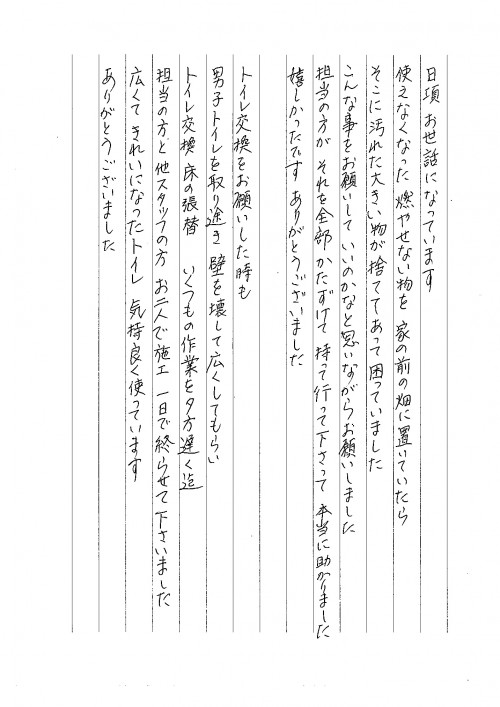 日頃 お世話になっています
使えなくなった 燃やせない物を 家の前の畑に置いていたら
そこに汚れた大きい物が捨ててあって困っていました
こんな事をお願いして いいのかなと思いながらお願いしました
担当の方が それを全部 かたずけて 持って行って下さって 本当に助かりました
嬉しかったです ありがとうございました
トイレ交換をお願いした時も
男子トイレを取り除き 壁を壊して広くしてもらい
トイレ交換 床の張替 いくつもの作業を夕方遅く迄
担当の方と他スタッフの方 お二人で施工 一日で終らせて下さいました
広くてきれいになったトイレ 気持良く使っています
ありがとうございました